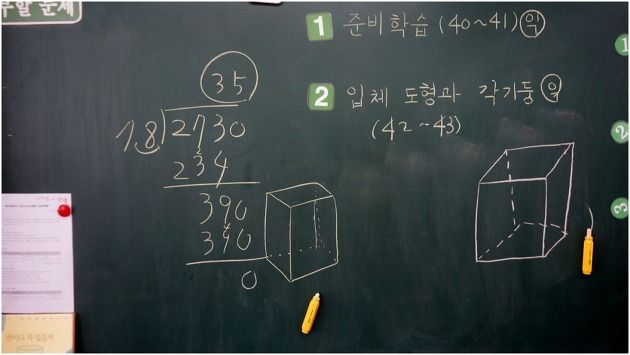 35
78)2730
234
390
390
0
1 준비학습 (40~41) 익
2 입체 도형과 각기둥 익
(42~43)
1
2
3